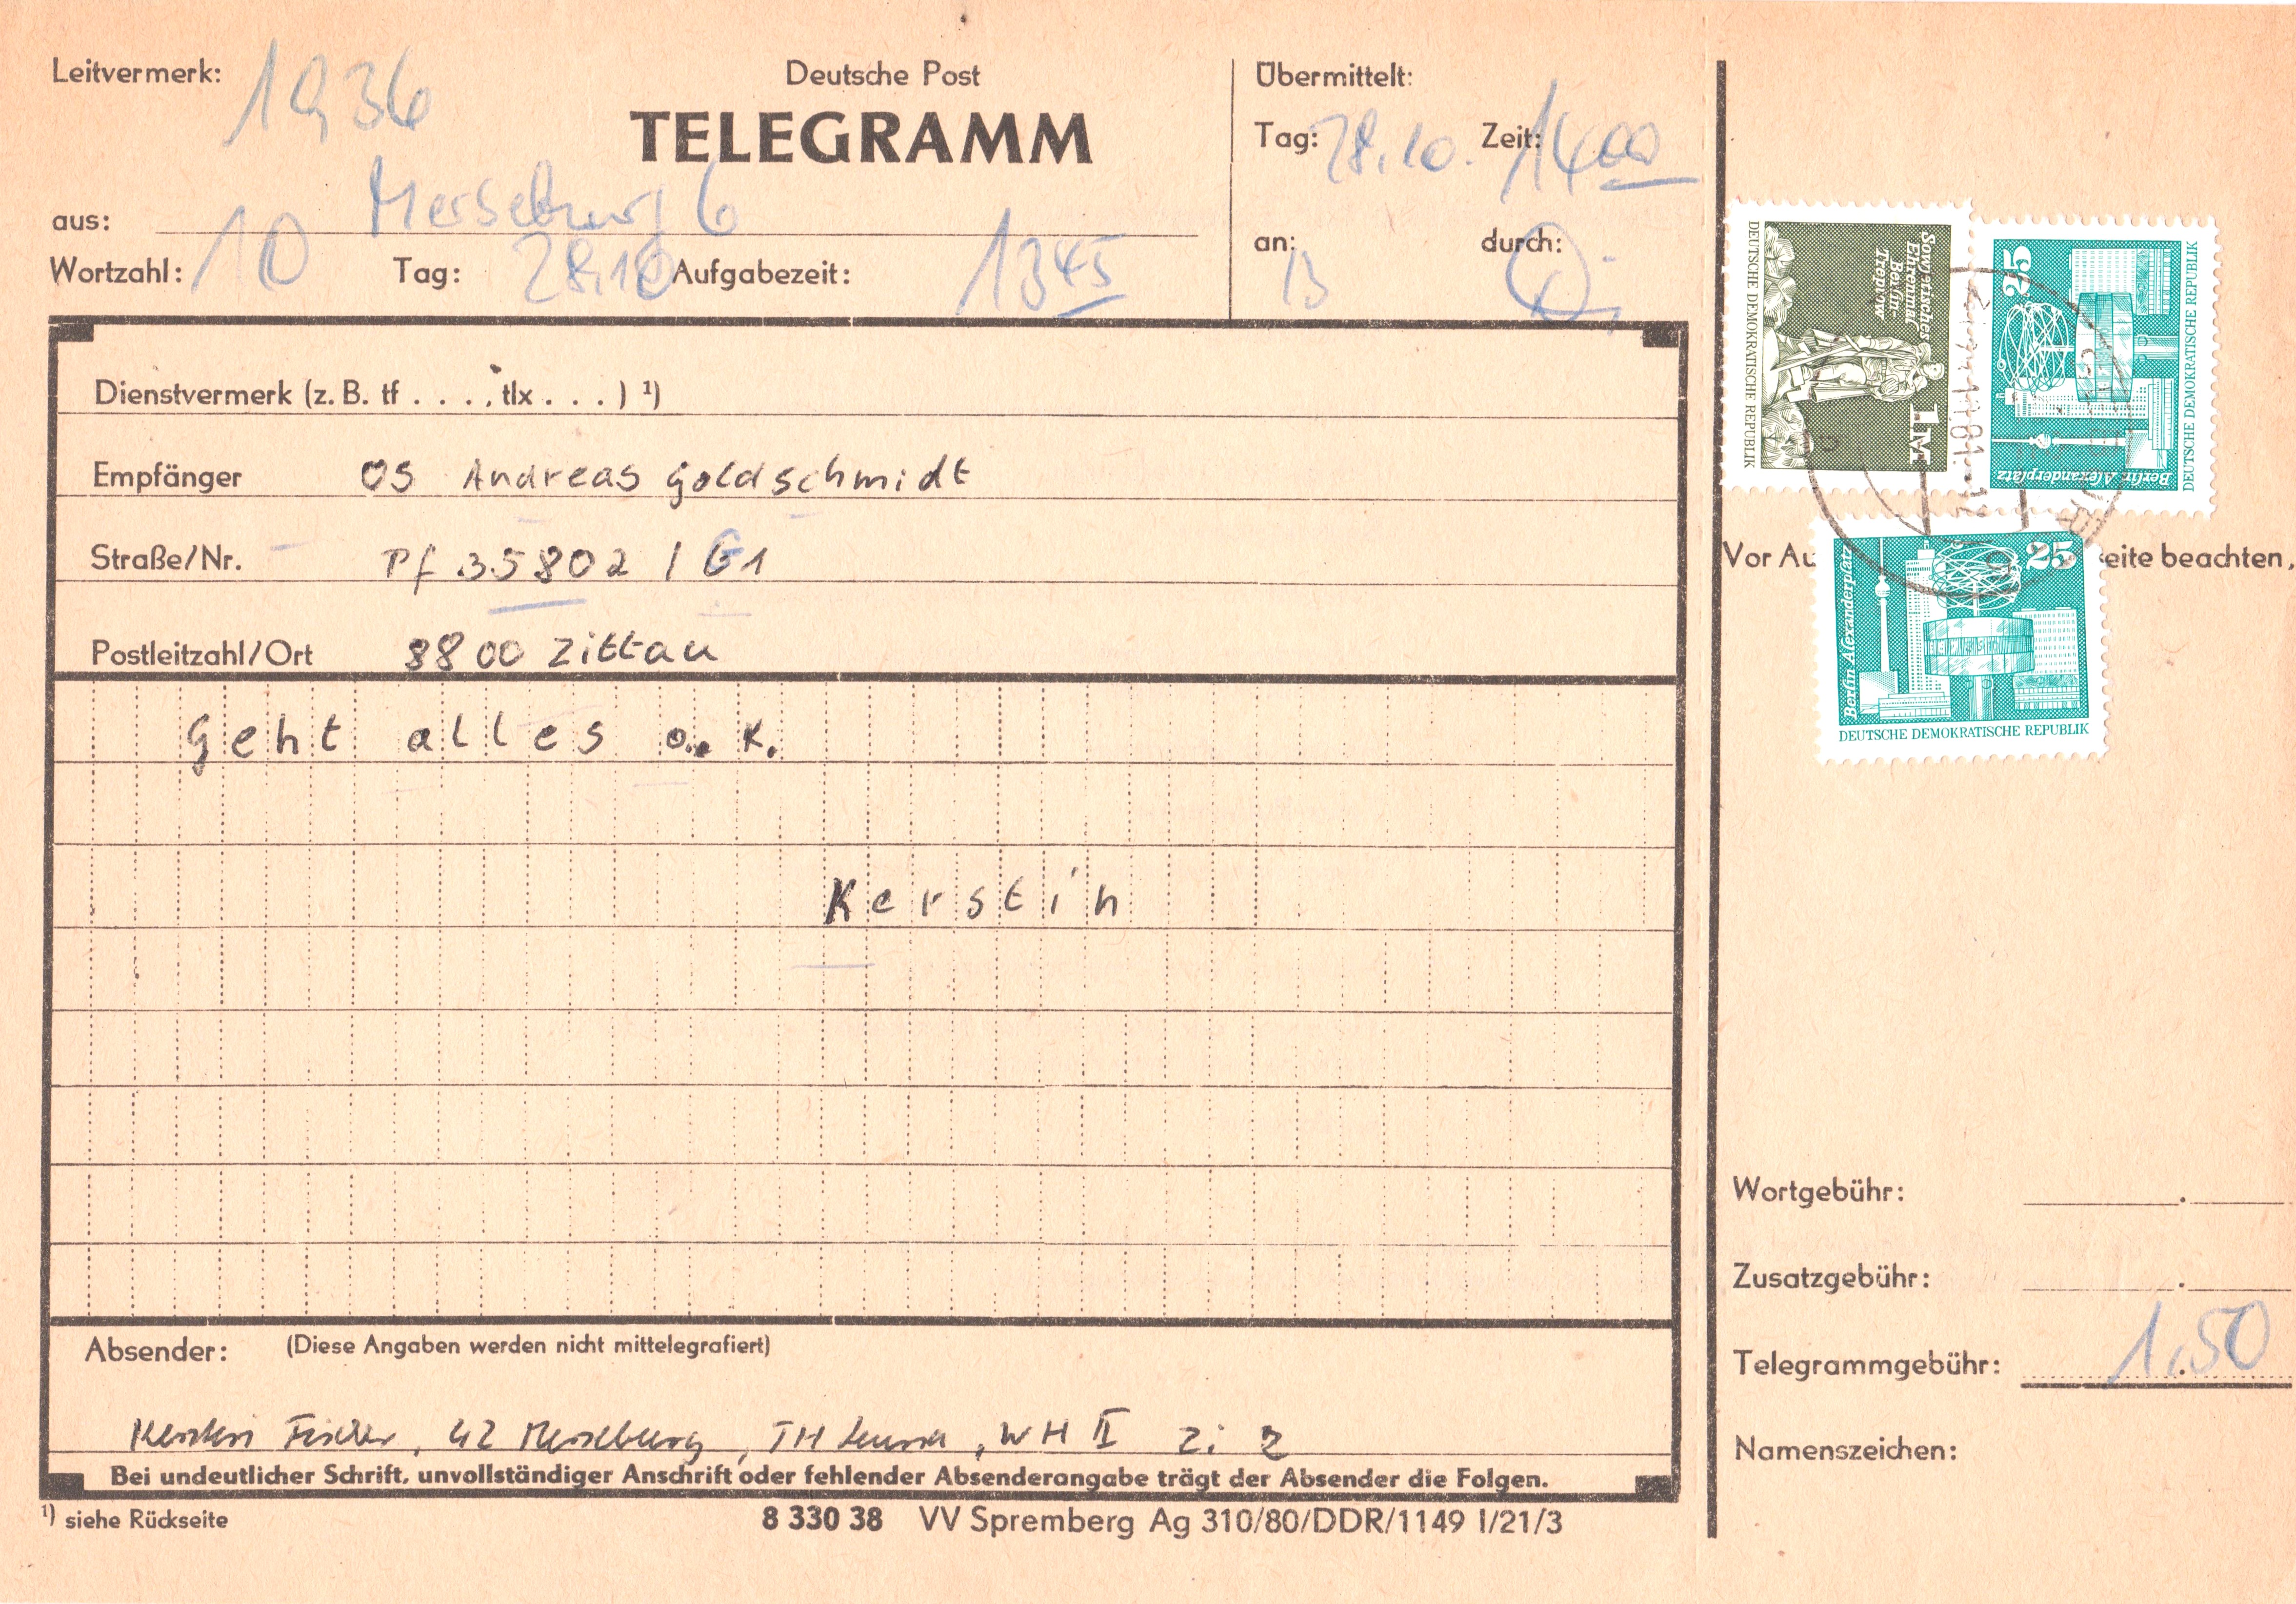 Leitvermerk: 1936
Deutsche Post
TELEGRAMM
aus: Merseburg 6
Wortzahl: 10 Tag: 28.10 Aufgabezeit: 1345
Übermittelt:
Tag: 28.10. Zeit: 1400
an: durch:
Dienstvermerk (z. B. tf . . . . , tlx . . . ) ¹)
Empfänger OS Andreas Goldschmidt
Straße/Nr. Pf 35802 / G1
Postleitzahl/Ort 8800 Zittau
Geht alles o. k.
Kerstin
Absender: (Diese Angaben werden nicht mittelegrafiert)
Kerstin Fischer, 42 Merseburg, TH Leuna, WH II Zi 2
Bei undeutlicher Schrift, unvollständiger Anschrift oder fehlender Absenderangabe trägt der Absender die Folgen.
¹) siehe Rückseite
8 330 38 VV Spremberg Ag 310/80/DDR/1149 I/21/3
Sowjetisches
Ehrenmal
Berlin-
Treptow
1 M
DEUTSCHE DEMOKRATISCHE REPUBLIK
25
Berlin, Alexanderplatz
DEUTSCHE DEMOKRATISCHE REPUBLIK
Vor Au eite beachten,
25
Berlin, Alexanderplatz
DEUTSCHE DEMOKRATISCHE REPUBLIK
Wortgebühr:
Zusatzgebühr:
Telegrammgebühr: 1.50
Namenszeichen: